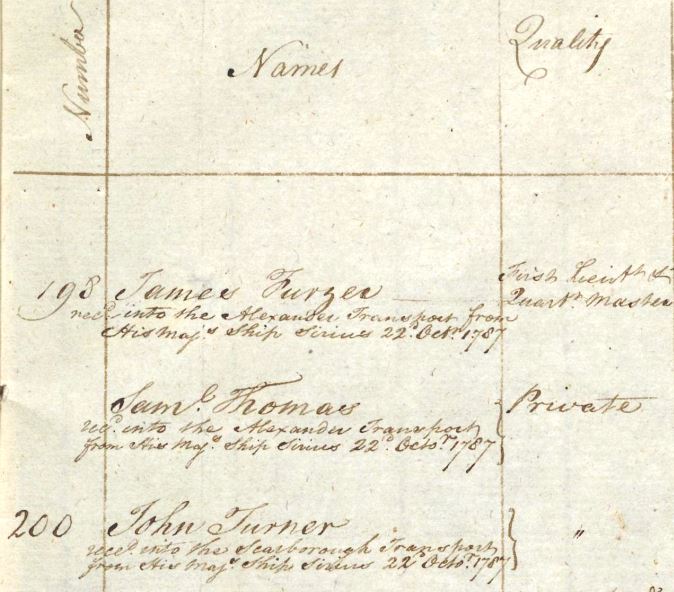 Number
Names
Quality
198 James Furzer
First Lieut.t &
Quart.r Master
rec.d into the Alexander Transport from
His Maj.s Ship Sirius 22.d Oct.r 1787
Sam.l Thomas
Private
rec.d into the Alexander Transport
from His Maj.s Ship Sirius 22.d Octo.r 1787
200 John Turner
"
rec.d into the Scarborough Transport
from His Maj.s Ship Sirius 22.d Octo.r 1787